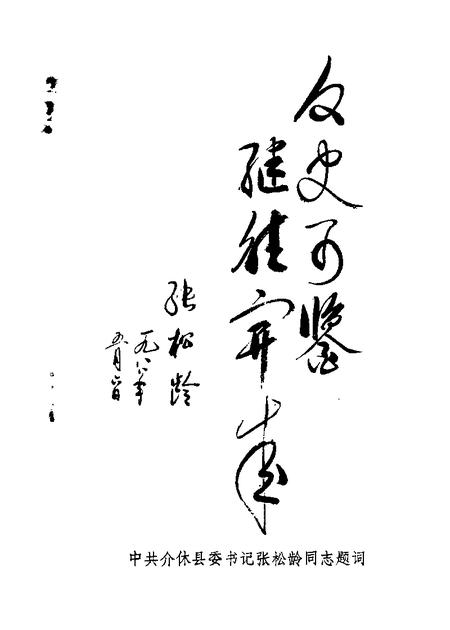 文史可鉴
继往开来
张松龄
一九八八年
五月六日
中共介休县委书记张松龄同志题词